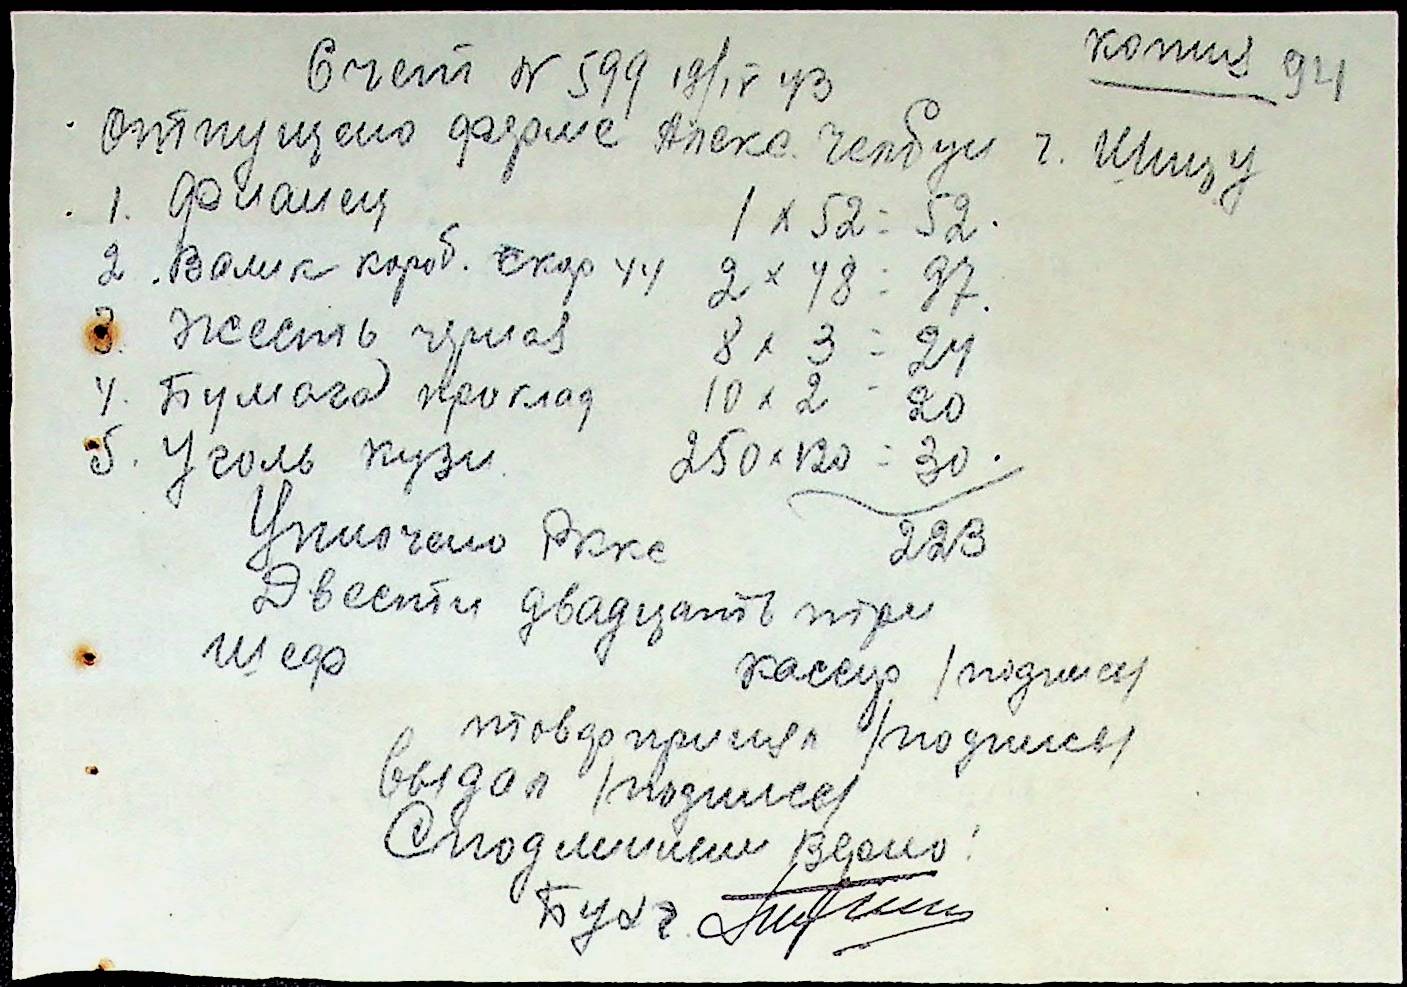 копия 94
Счет N 599 19/IV 43
Отпущено ферме Алекс. г.
1. Фланец 1 x 52 = 52.
2. Валик короб. скор 44 2 x 48 = 97.
3. Жесть черная 8 x 3 = 24
4. Бумага проклад 10 x 2 = 20
5. Уголь кузн. 250 x 120 = 30.
Уплочено Рккс 223
Двести двадцать три
Шеф кассир /подпись/
товар принял /подпись/
Выдал /подпись/
С подлинным верно!
Бухг.